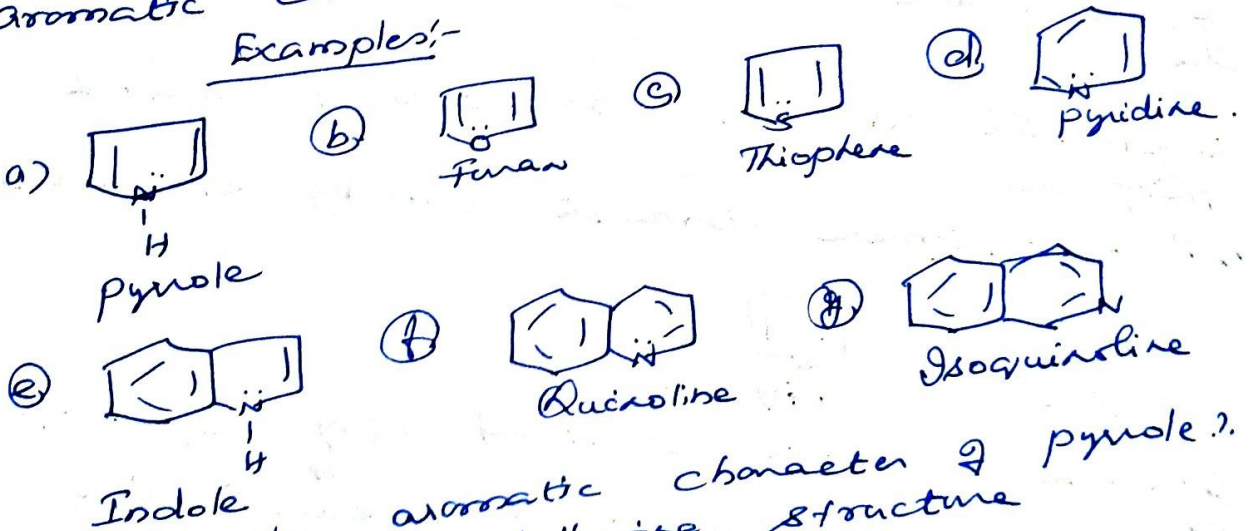 aromatic
Examples:-
a)
N
H
Pyrrole
b
O
Furan
c
S
Thiophene
d
N
Pyridine.
e
N
H
Indole
f
N
Quinoline
g
N
Isoquinoline
aromatic character of pyrrole?.
structure